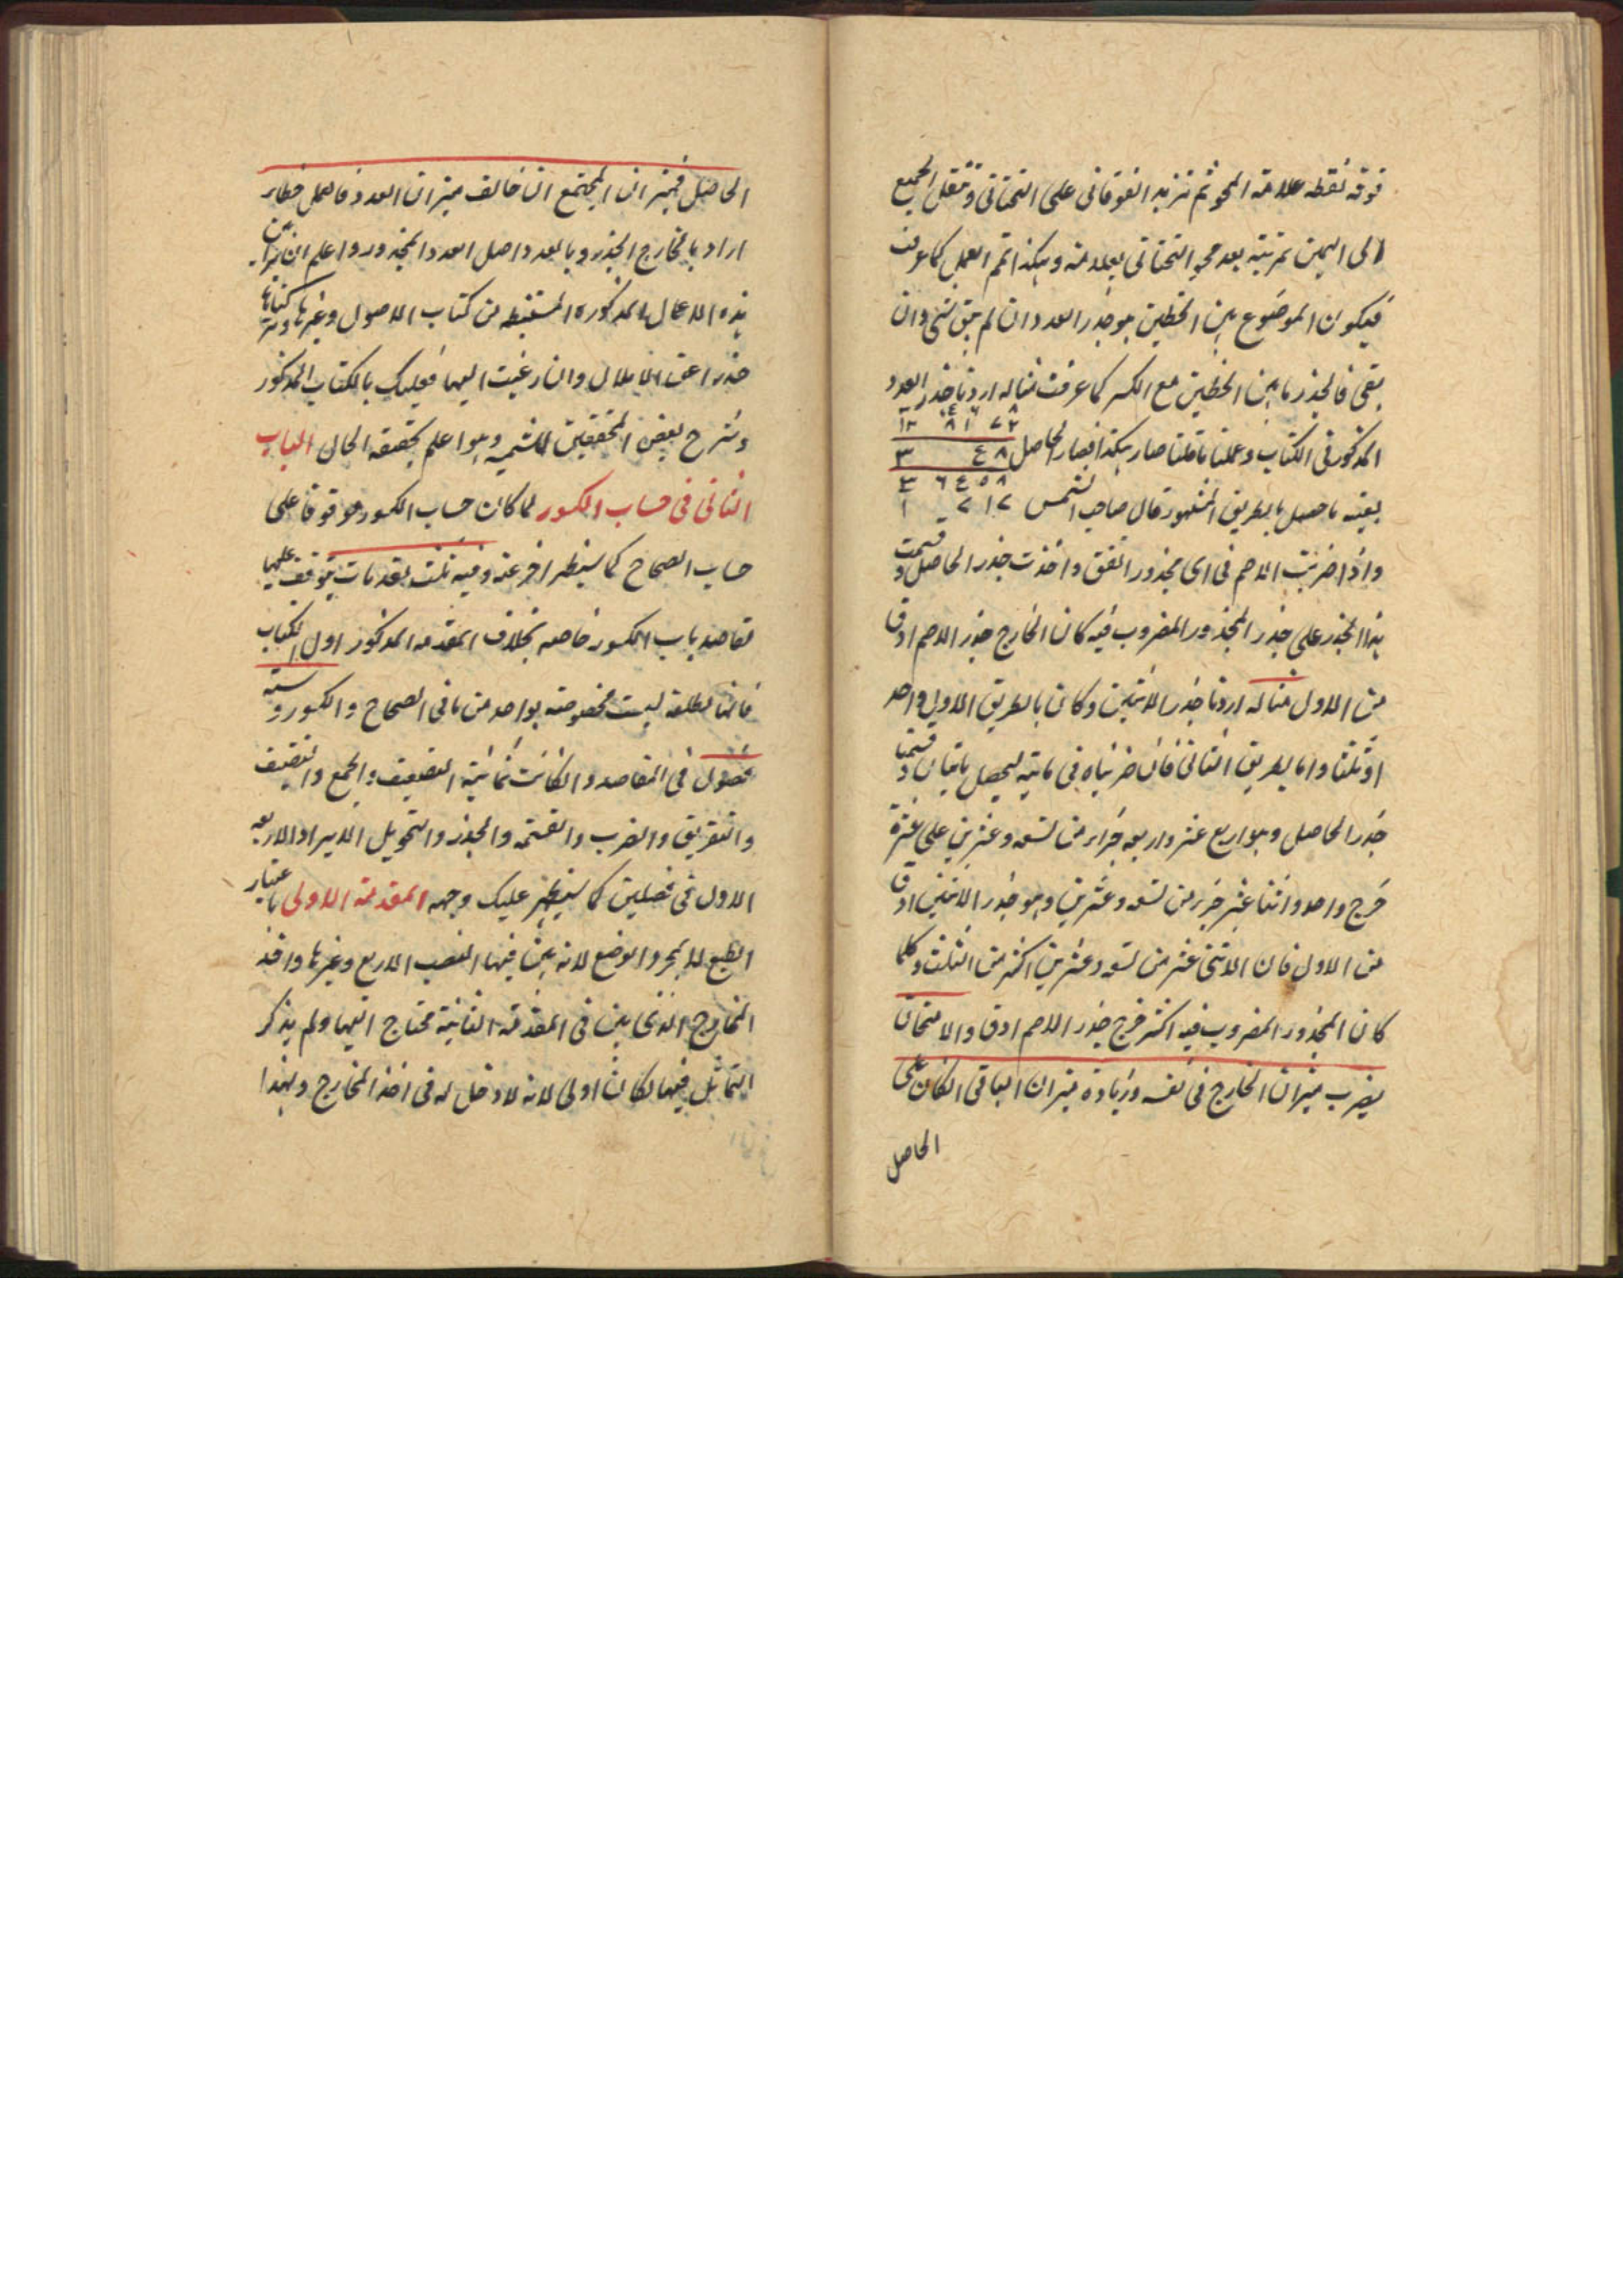 فوقه نقطه علامة المحو ثم تزيد الفوقانى على التحتانى وتنقل الجميع
الى اليمين بمرتبة بعد محو التحتانى بعلامة وهكذا تمم العمل كما عرفت
فيكون الموضوع بين الخطين هو جذر العدد ان لم يبق شئ وان
بقى فالجذر ما بين الخطين مع الكسر كما عرفت مثاله اردنا جذر العدد
المذكور فى الكتاب وعملنا ما قلنا صار هكذا فصار الحاصل
بعينه ما حصل بالطريق المشهور قال صاحب الشمس
واذا ضربت الاصم فى اى مجذور اتفق واخذت جذر الحاصل وقسمت
هذا الجذر على جذر المجذور المضروب فيه كان الخارج جذر الاصم ادق
من الاول مثاله اردنا جذر الاثنين وكان بالطريق الاول واحد
او ثلثا واما بطريق الثانى فان ضربناه فى مائة ليحصل مائتان وقسمنا
جذر الحاصل وهو اربع عشر واربعة اجزاء من تسعة وعشرين على عشرة
خرج واحد واثنا عشر جزء من تسعة وعشرين وهو جذر الاثنين ادق
من الاول فان الاثنى عشر من تسعة وعشرين اكثر من الثلث وكلما
كان المجذور المضروب فيه اكثر خرج جذر الاصم ادق والامتحان
بضرب ميزان الخارج فى نفسه وزيادة ميزان الباقى ان كان على
الحاصل
الحاصل فميزان المجتمع ان خالف ميزان العدد فالعمل خطاء
اراد بالخارج الجذر وبالعدد اصل العدد المجذور واعلم ان براهين
هذه الاعمال المذكورة المستنبطة من كتاب الاصول وغيرها وتركناها
حذرا عن الاملال وان رغبت اليها فعليك بالكتاب المذكور
وشرح بعض المحققين للشمسية وهو اعلم بحقيقة الحال الباب
الثانى فى حساب الكسور لما كان حساب الكسور موقوفا على
حساب الصحاح كما سيظهر اخر عنه وفيه ثلث مقدمات يتوقف عليها
مقاصد باب الكسور خاصة بخلاف المقدمة المذكور اول الكتاب
فانها مطلقة ليست مخصوصة بواحد من بابى الصحاح والكسور وستة
فصول فى المقاصد وان كانت ثمانية التضعيف والجمع والتنصيف
والتفريق والضرب والقسمة والجذر والتحويل لايراد الاربعة
الاول فى فصلين كما سيظهر عليك وجهه المقدمة الاولى باعتبار
الطبع لا بمجرد الوضع لانه بين فيها النسب الاربع وغيرها واخذ
المخارج الذى بين فى المقدمة الثانية محتاج اليها ولم يذكر
التماثل فيها لكان اولى لانه لا دخل له فى اخذ المخارج ولهذا